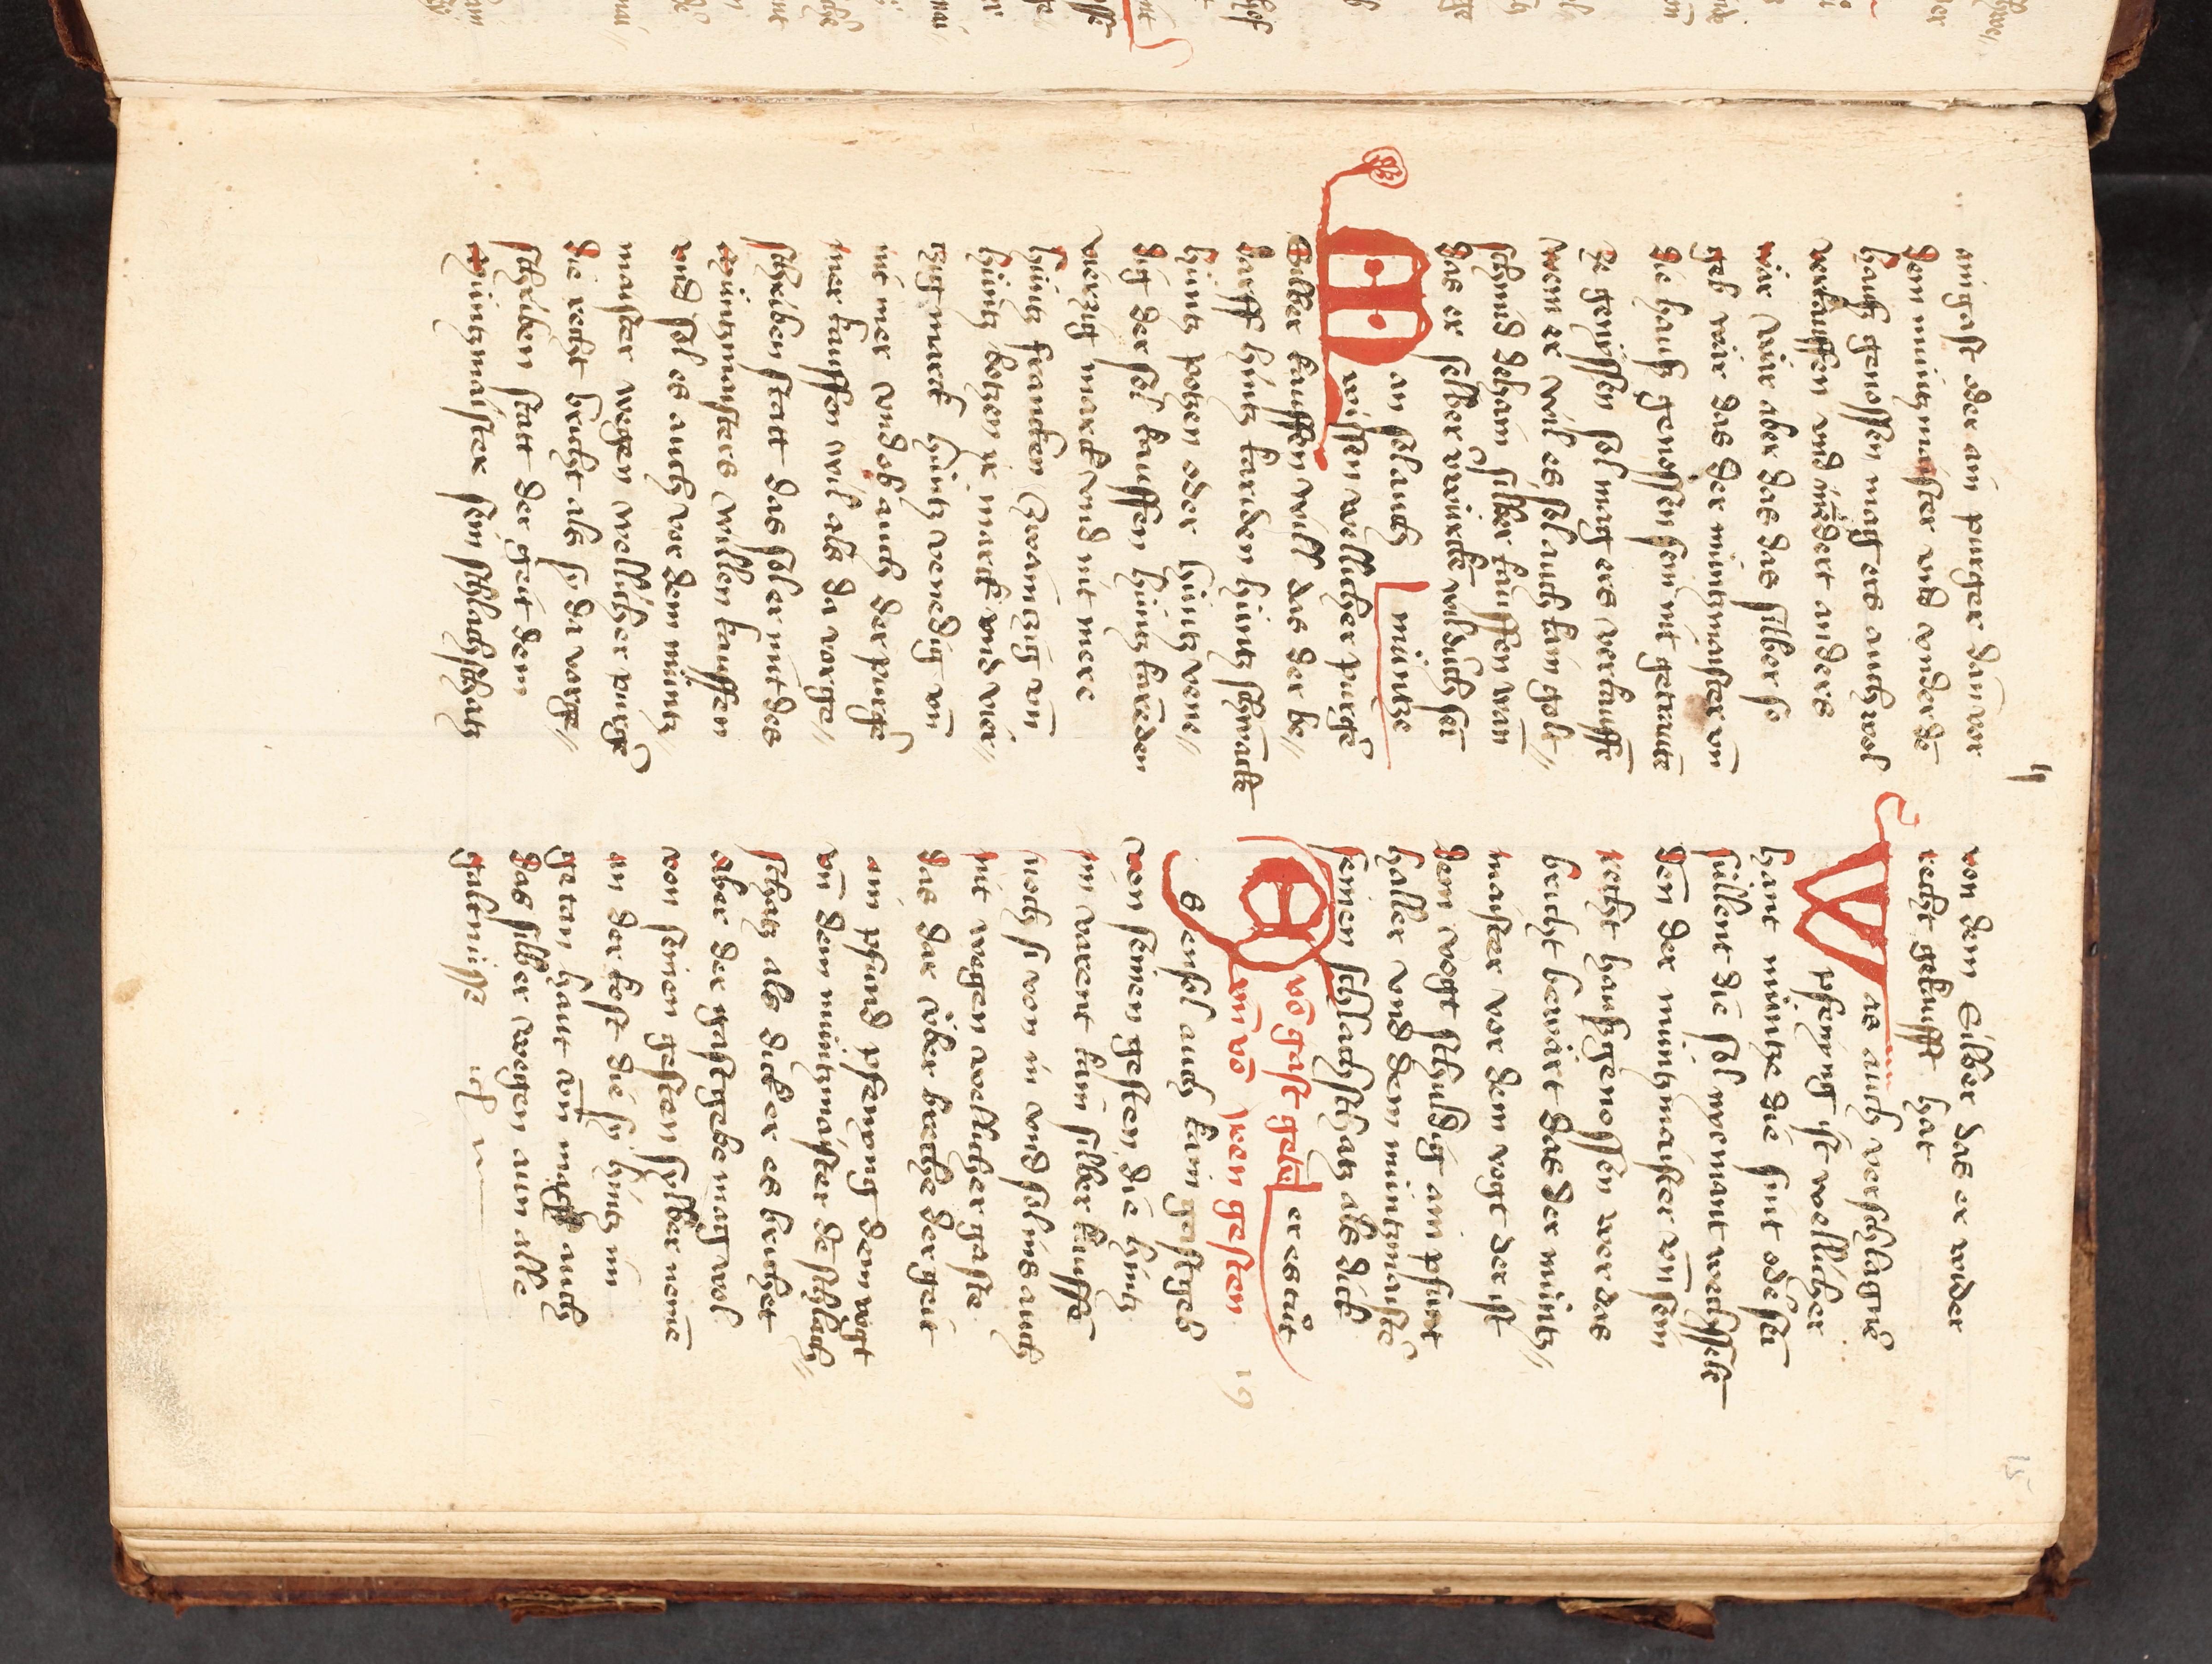 15
4
ain gast oder ain purger dañ vor
dem müntzmaister vnd vnder dē
hauß genossen mag ers auch wol
verkauffen vnd niēdert anders
wär wär aber das das silber so
geb wär das der müntzmaister vñ
die hauß genossen sein nit getrautē
ze genyessen sol mag ers verkauffē
wem er wil es sol auch kain golt//
schmid dehain silber kauffen wañ
das er selber würcke wil durch sein
an slauch müntze
Wissen wellicher purger
Silber kauffen will das der be//
darff hüntz karnden hüntz schwatz
hüntz potzen oder hüntz vene//
dig der sol kauffen hüntz karnden
vierzig marck vnd nit mere
hüntz francken zwaintzig vñ
hüntz botzen ix marck vnd vier//
tzig marck hüntz venedig vñ
nit mer vnd ob auch der purger
mer kauffen wil als da vorge//
schriben statt das sol er mit des
müntzmaisters willen kauffen
vnd sol es auch vor dem müntz//
maister wegen wellicher purger
die recht bricht als hy da vorge//
schriben statt der geit dem
müntzmaister sein schlachschatz
von dem Silber das er wider
recht gekaufft hat
Was auch verschlagner
pfening ist wellicher
hant müntze die sint oder sein
süllent die sol nyemant wechsseln
den der müntzmaister vñ sein
recht haußgenossen wer das
bricht bewärt das der müntz//
maister vor dem vogt der ist
dem vogt schuldig ain pfunt
haller vnd dem müntzmaister
seinen schlachschatz als dick
er es tůt
vō gast gebē
vñ vō iren gesten 19
Es ensol auch kain gastgeb
von seinen gesten die hüntz
im varent kain silber kauffē
noch si von in vnd sol ins auch
nit wegen wellicher gaste
das dar über breche der geit
ain pfund pfenning dem vogt
vñ dem müntzmaister dē schlach//
schatz als dick er es brichet
aber der gastgebe mag wol
von seinen gesten sylber nemē
an der kost die sy hüntz im
getan hant vñ mag auch
das silber wegen aun alle
galtnüsse